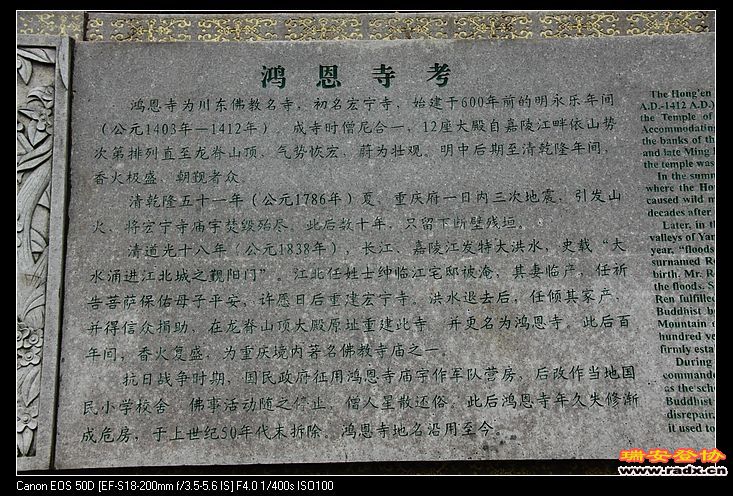 鸿恩寺考
鸿恩寺为川东佛教名寺。初名宏宁寺，始建于600年前的明永乐年间
（公元1403年—1412年）。成寺时僧尼合一，12座大殿自嘉陵江畔依山势
次第排列直至龙脊山顶，气势恢宏，蔚为壮观。明中后期至清乾隆年间，
香火极盛，朝觐者众。
清乾隆五十一年（公元1786年）夏，重庆府一日内三次地震，引发山
火，将宏宁寺庙宇焚毁殆尽。此后数十年，只留下断壁残垣。
清道光十八年（公元1838年），长江、嘉陵江发特大洪水，史载“大
水涌进江北城之觐阳门”。江北任姓士绅临江宅邸被淹，其妻临产，任祈
告菩萨保佑母子平安，许愿日后重建宏宁寺。洪水退去后，任倾其家产，
并得信众捐助，在龙脊山顶大殿原址重建此寺 并更名为鸿恩寺。此后百
年间，香火复盛，为重庆境内著名佛教寺庙之一
抗日战争时期，国民政府征用鸿恩寺庙宇作军队营房。后改作当地国
民小学校舍 佛事活动随之停止，僧人星散还俗。此后鸿恩寺年久失修渐
成危房，于上世纪50年代末拆除。鸿恩寺地名沿用至今。
The Hong'en
A.D.-1412 A.D.)
the Temple of
Accommodating
the banks of th
and late Ming
the temple was
In the summ
where the Ho
caused wild m
decades after
Later, in th
valleys of Yan
year, "floods
surnamed R
birth. Mr. R
the floods. S
Ren fulfilled
Buddhist b
Mountain
hundred ye
firmly esta
During
commande
as the sch
Buddhist
disrepair.
it used to
瑞安登协
www.radx.cn
Canon EOS 50D [EF-S18-200mm f/3.5-5.6 IS] F4.0 1/400s ISO100